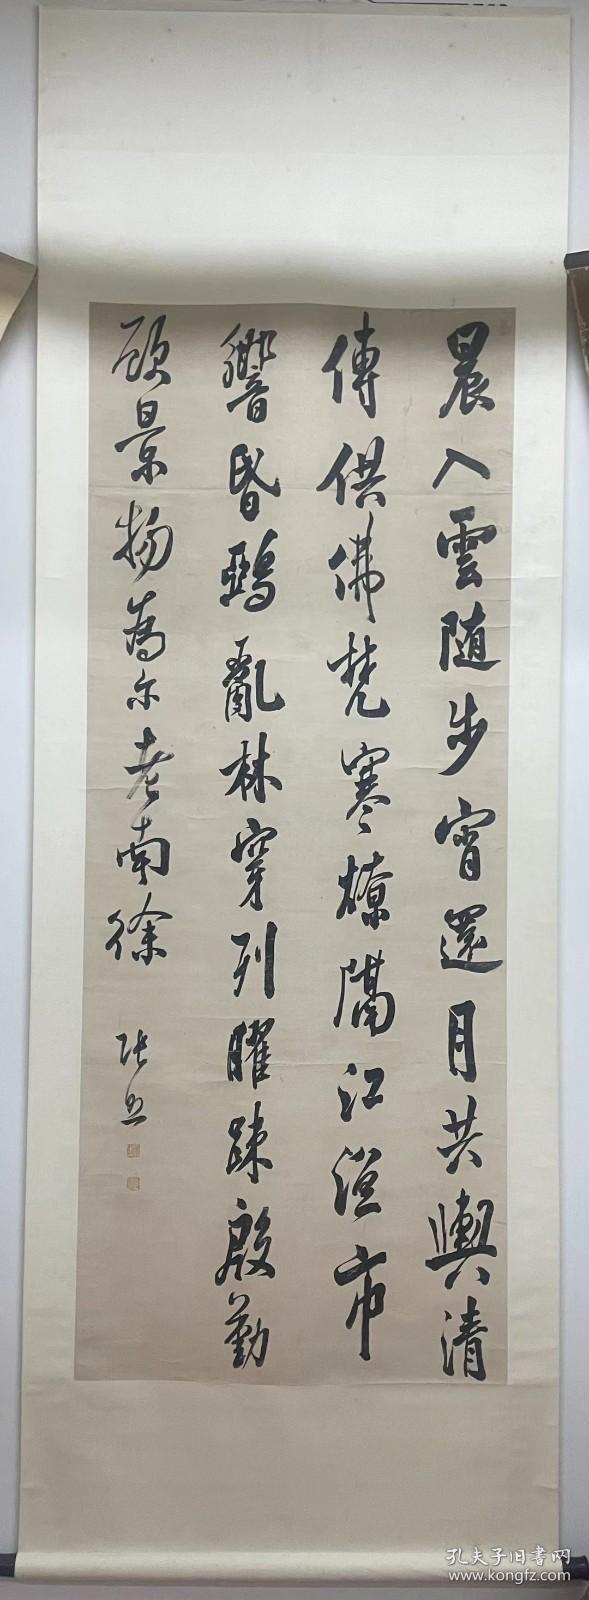 晨入雲随步宵還月共輿清
傳供佛梵寒燎隔江漁市
響昏鴉亂林穿列曜踈殷勤
顾景物為尔老南徐
張照
孔夫子旧書网
www.kongfz.com